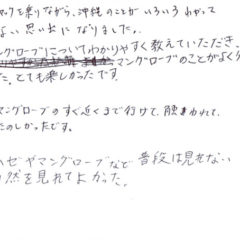 ヤックを乗りながら、沖縄のことがいろいろわかって
ない思い出になりました。
ングローブについてわかりやすく教えていただき、
マングローブのことがよく
た。とても楽しかったです。
マングローブのすぐ近くまで行けて、触れて
たのしかったです。
ハゼやマングローブなど普段は見れない
然を見れてよかった。